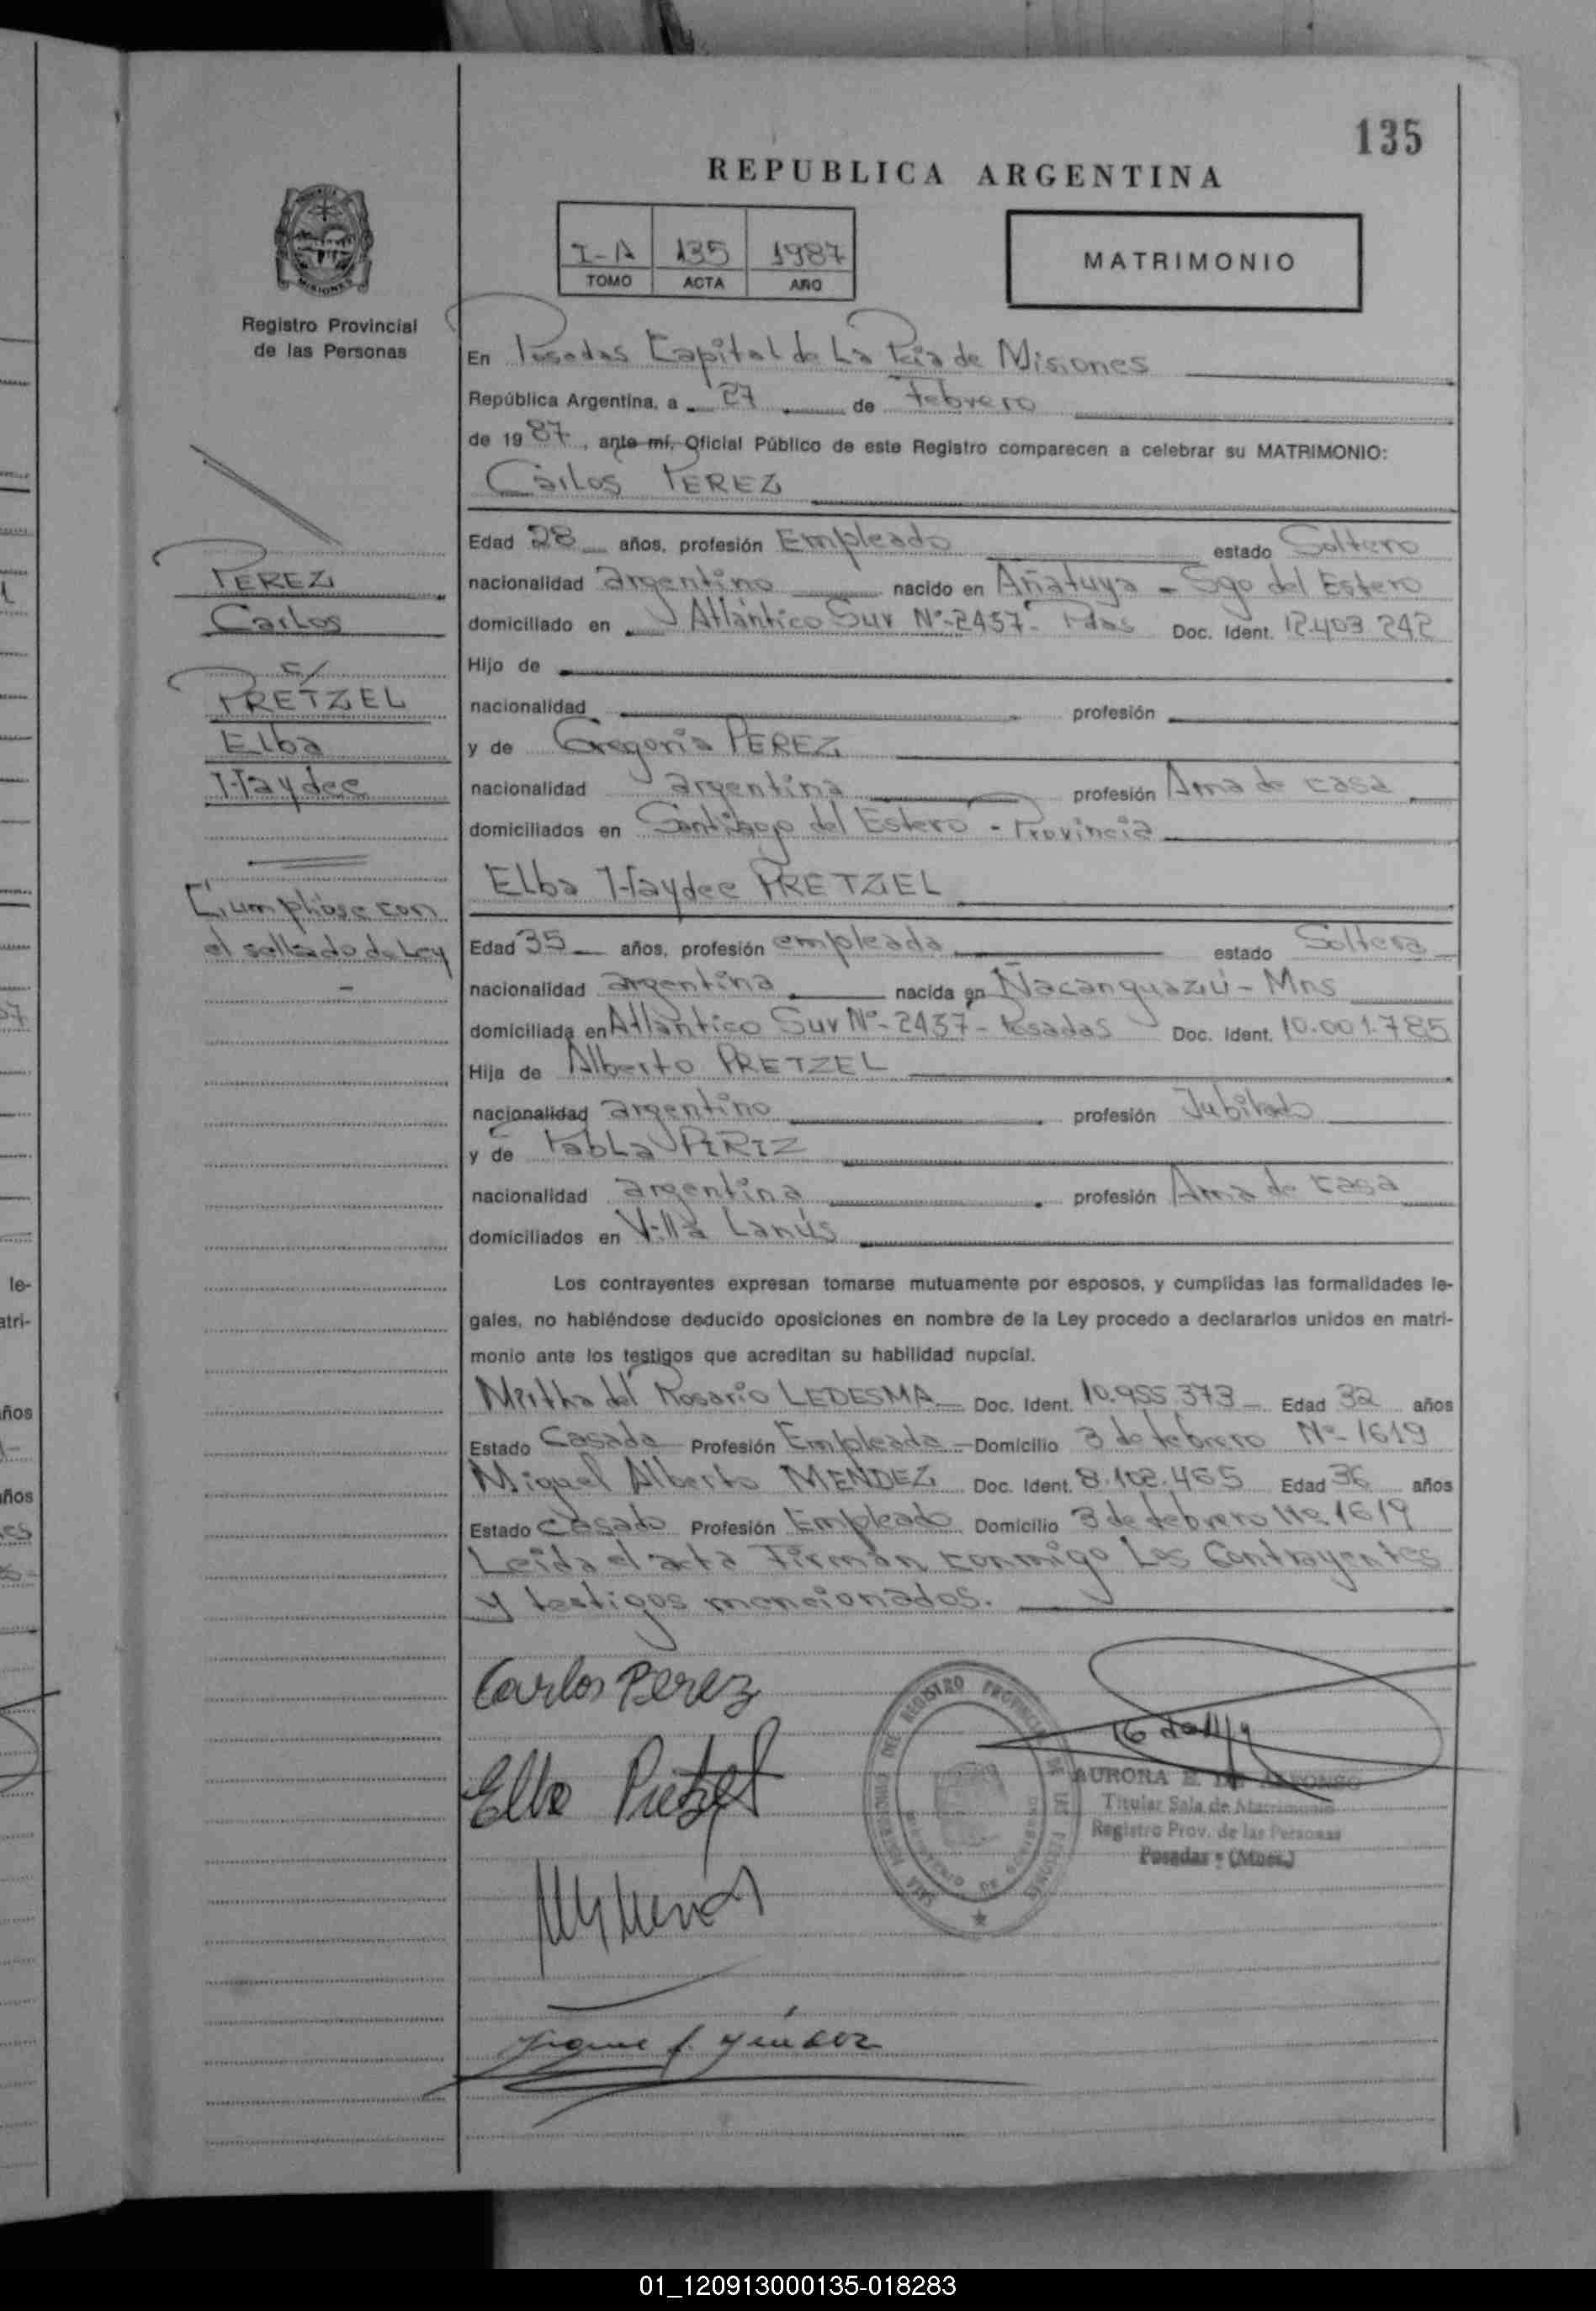 135
REPUBLICA ARGENTINA
I-A 135 1987
TOMO ACTA AÑO
MATRIMONIO
Registro Provincial
de las Personas
En Posadas Capital de La Pcia de Misiones
República Argentina, a 27 de Febrero
de 1987, ante mí, Oficial Público de este Registro comparecen a celebrar su MATRIMONIO:
Carlos PEREZ
Edad 28 años, profesión Empleado estado Soltero
nacionalidad argentino nacido en Añatuya - Sgo del Estero
domiciliado en Atlántico Sur Nº-2457- Pdas Doc. Ident. 12.403 242
Hijo de
nacionalidad profesión
y de Gregoria PEREZ
nacionalidad argentina profesión Ama de casa
domiciliados en Santiago del Estero - Provincia
Elba Haydee PRETZEL
Edad 35 años, profesión empleada estado Soltera
nacionalidad argentina nacida en Ñacanguazú - Mns
domiciliada en Atlántico Sur Nº-2457- Posadas Doc. Ident. 10.001.785
Hija de Alberto PRETZEL
nacionalidad argentino profesión Jubilado
y de PabLa PIRIZ
nacionalidad argentina profesión Ama de casa
domiciliados en Villa Lanús
Los contrayentes expresan tomarse mutuamente por esposos, y cumplidas las formalidades le-
gales, no habiéndose deducido oposiciones en nombre de la Ley procedo a declararlos unidos en matri-
monio ante los testigos que acreditan su habilidad nupcial.
Mirtha del Rosario LEDESMA Doc. Ident. 10.955.373 Edad 32 años
Estado Casada Profesión Empleada Domicilio 3 de febrero Nº-1619
Miguel Alberto MENDEZ Doc. Ident. 8.102.465 Edad 36 años
Estado Casado Profesión Empleado Domicilio 3 de febrero Nº 1619
Leida el acta Firman conmigo Los Contrayentes
y testigos mencionados.
PEREZ
Carlos
c/
PRETZEL
Elba
Haydee
Cúmplase con
el sellado de Ley
-
Carlos Perez
Elba Pretzel
AURORA
Titular Sala de Matrimonio
Registro Prov. de las Personas
Posadas - (Mnes.)
DEL REGISTRO PROVINCIAL DE LAS PERSONAS
le-
atri-
ños
ños
01_120913000135-018283